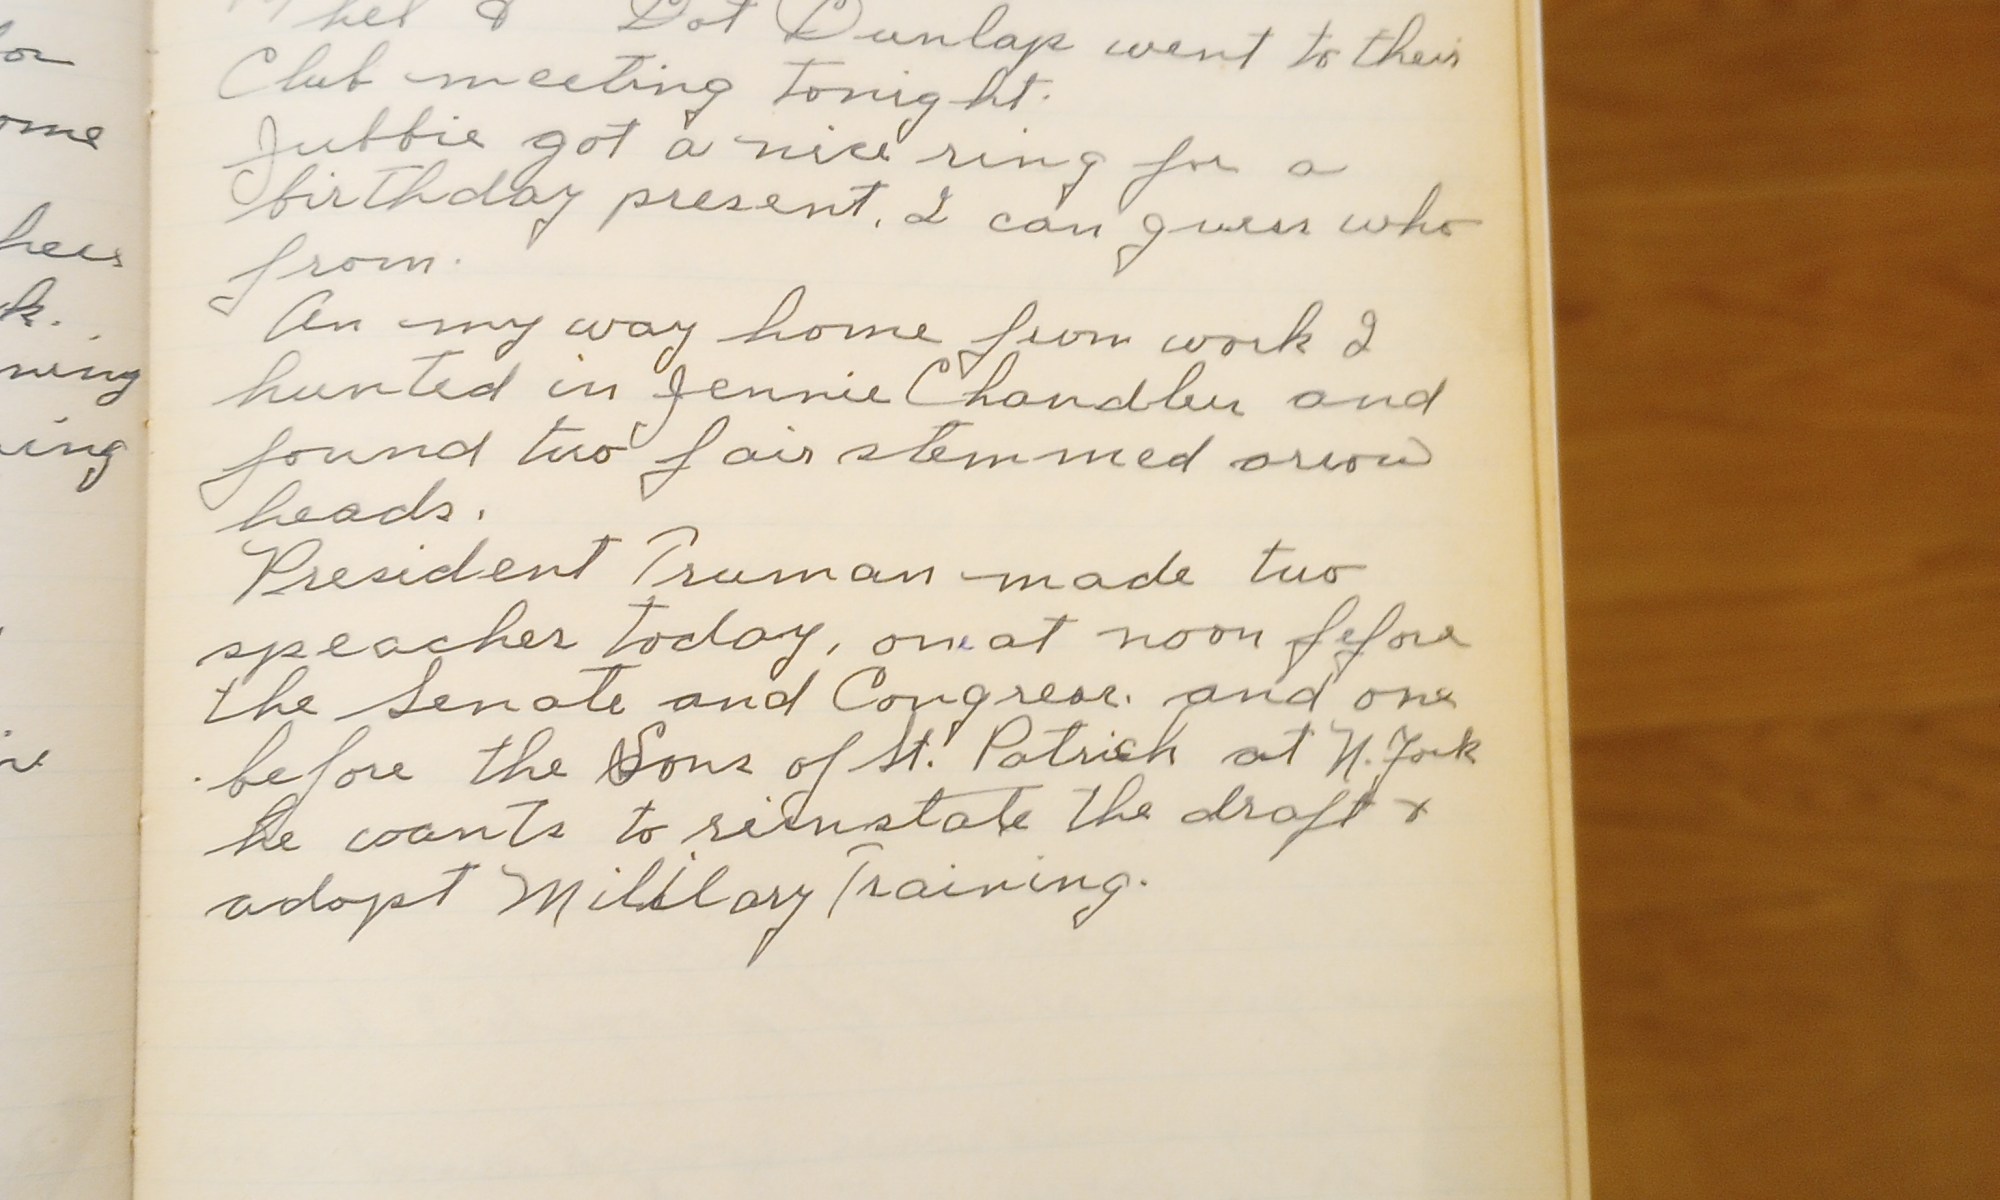 & Dot Dunlap went to their
Club meeting tonight.
Jubbie got a nice ring for a
birthday present. I can guess who
from.
On my way home from work I
hunted in Jennie Chandler and
found two fair stemmed arrow
heads.
President Truman made two
speaches today, one at noon fefore
the Senate and Congress. and one
before the Sons of St. Patrick at N. York
he wants to reinstate the draft &
adopt Military Training.
ome
k.